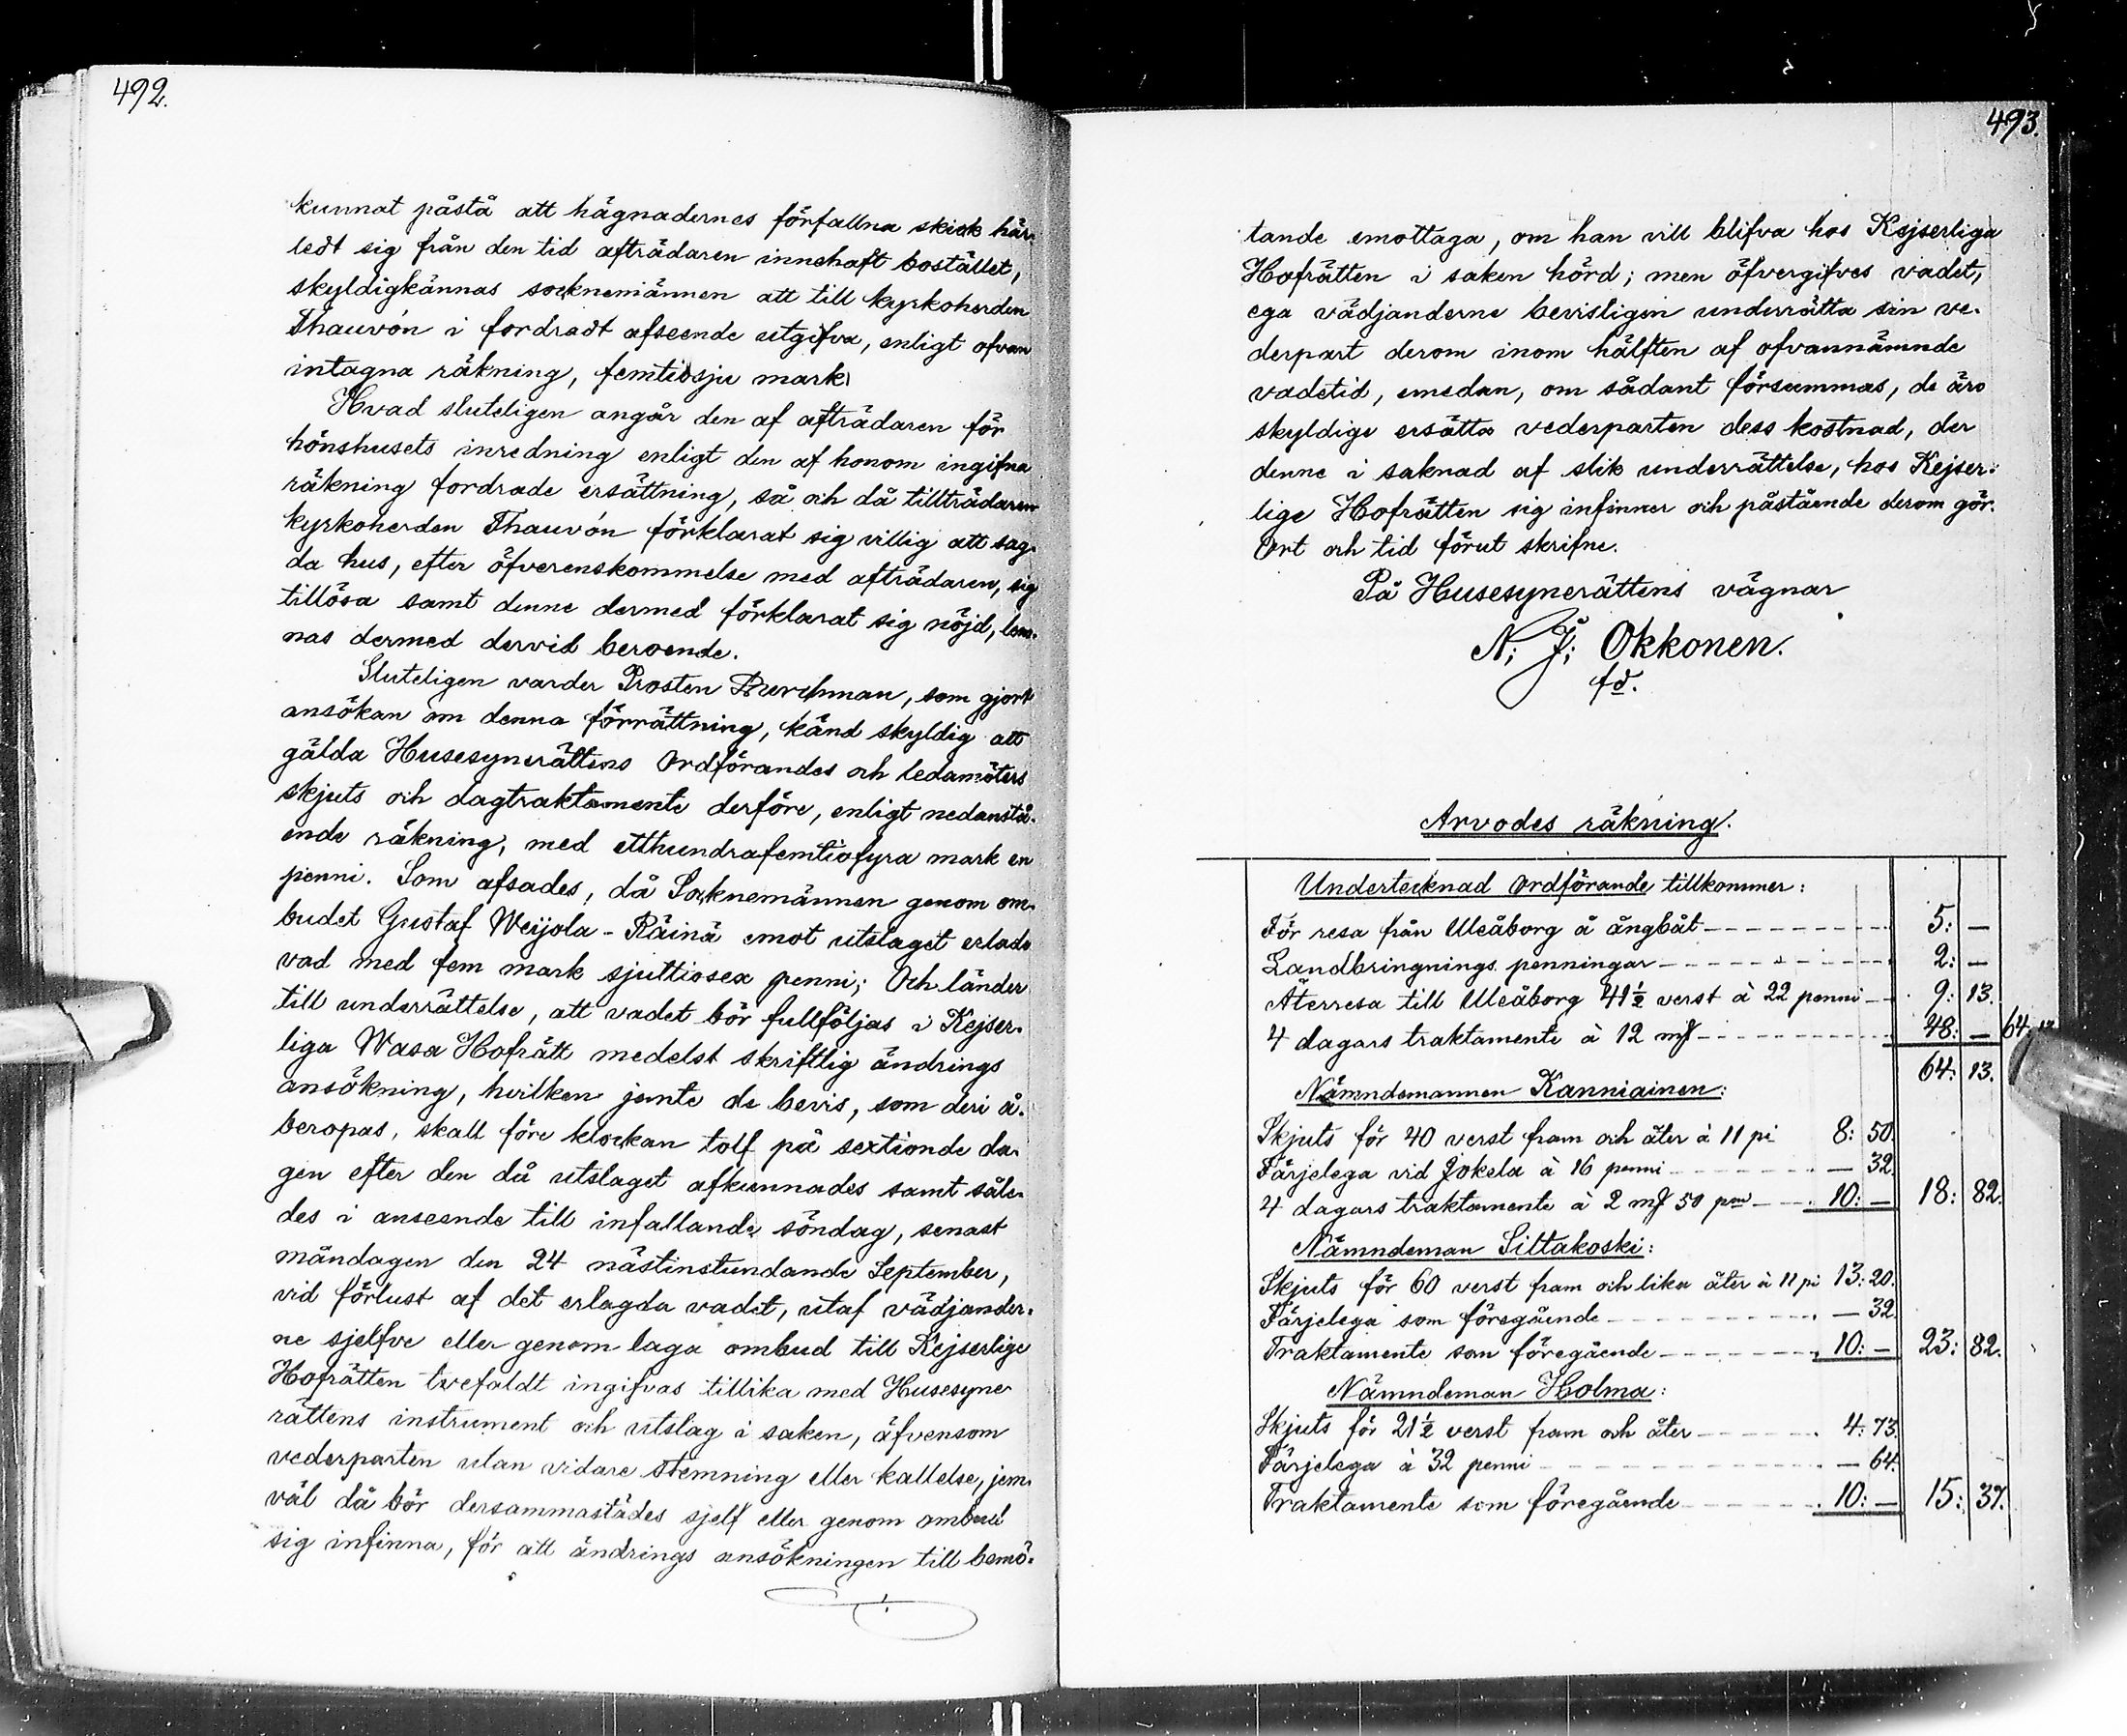 492.
kunnat påstå att hägnadernes förfallna skick här-
ledt sig från den tid afträdaren innehaft bostället,
skyldigkännas socknemännen att till kyrkoherden
Thauvón i fordradt afseende utgifva, enligt ofvan
intagna räkning, femtiosju mark.
Hvad sluteligen angår den af afträdaren för
hönshusets inredning enligt den af honom ingifna
räkning fordrade ersättning, så och då tillträdaren
kyrkoherden Thauvón förklarat sig villig att sag-
da hus, efter öfverenskommelse med afträdaren, sig
tillösa samt denne dermed förklarat sig nöjd, lem-
nas dermed dervid beroende.
Sluteligen varder Prosten Burchman, som gjort
ansökan om denna förrättning, känd skyldig att
gälda Husesynerättens Ordförandes och ledamöters
skjuts och dagtraktamente derföre, enligt nedanstå-
ende räkning, med etthundrafemtiofyra mark en
penni. Som afsades, då Socknemännen genom om-
budet Gustaf Weijola-Räinä emot utslaget erlade
vad med fem mark sjuttiosex penni; Och länder
till underrättelse, att vadet bör fullföljas i Kejser-
liga Wasa Hofrätt medelst skriftlig ändrings
ansökning, hvilken jemte de bevis, som deri å-
beropas, skall före klockan tolf på sextionde da-
gen efter den då utslaget afkunnades samt såle-
des i anseende till infallande söndag, senast
måndagen den 24 nästinstundande September,
vid förlust af det erlagda vadet, utaf vädjander-
ne sjelfve eller genom laga ombud till Kejserlige
Hofrätten tvefaldt ingifvas tillika med Husesyne
rättens instrument och utslag i saken, äfvensom
vederparten utan vidare stemning eller kallelse, jem-
väl då bör dersammastädes sjelf eller genom ombud
sig infinna, för att ändrings ansökningen till bemö-
493.
tande emottaga, om han vill blifva hos Kejserliga
Hofrätten i saken hörd; men öfvergifves vadet,
ega vädjanderne bevisligen underrätta sin ve-
derpart derom inom hälften af ofvannämnde
vadetid, emedan, om sådant försummas, de äro
skyldige ersätta vederparten dess kostnad, der
denne i saknad af slik underrättelse, hos Kejser-
lige Hofrätten sig infinner och påstående derom gör.
Ort och tid förut skrifne.
På Husesynerättens vägnar
N; J; Okkonen.
fd.
Arvodes räkning.
Undertecknad Ordförande tillkommer:
För resa från Uleåborg å ångbåt 5: —
Landbringnings penningar 2: —
Återresa till Uleåborg 41½ verst à 22 penni 9: 13.
4 dagars traktamente à 12 mf 48: — 64:
64: 13.
Nämndemannen Kanniainen:
Skjuts för 40 verst fram och åter à 11 pi 8: 50.
Färjelega vid Jokela à 16 penni — 32.
4 dagars traktamente à 2 mf 50 pni 10: — 18: 82.
Nämndeman Siltakoski:
Skjuts för 60 verst fram och lika åter à 11 pi 13: 20.
Färjelega som föregående — 32.
Traktamente som föregående 10: — 23: 82.
Nämndeman Holma:
Skjuts för 21½ verst fram och åter 4: 73.
Färjelega à 32 penni — 64.
Traktamente som föregående 10: — 15: 37.